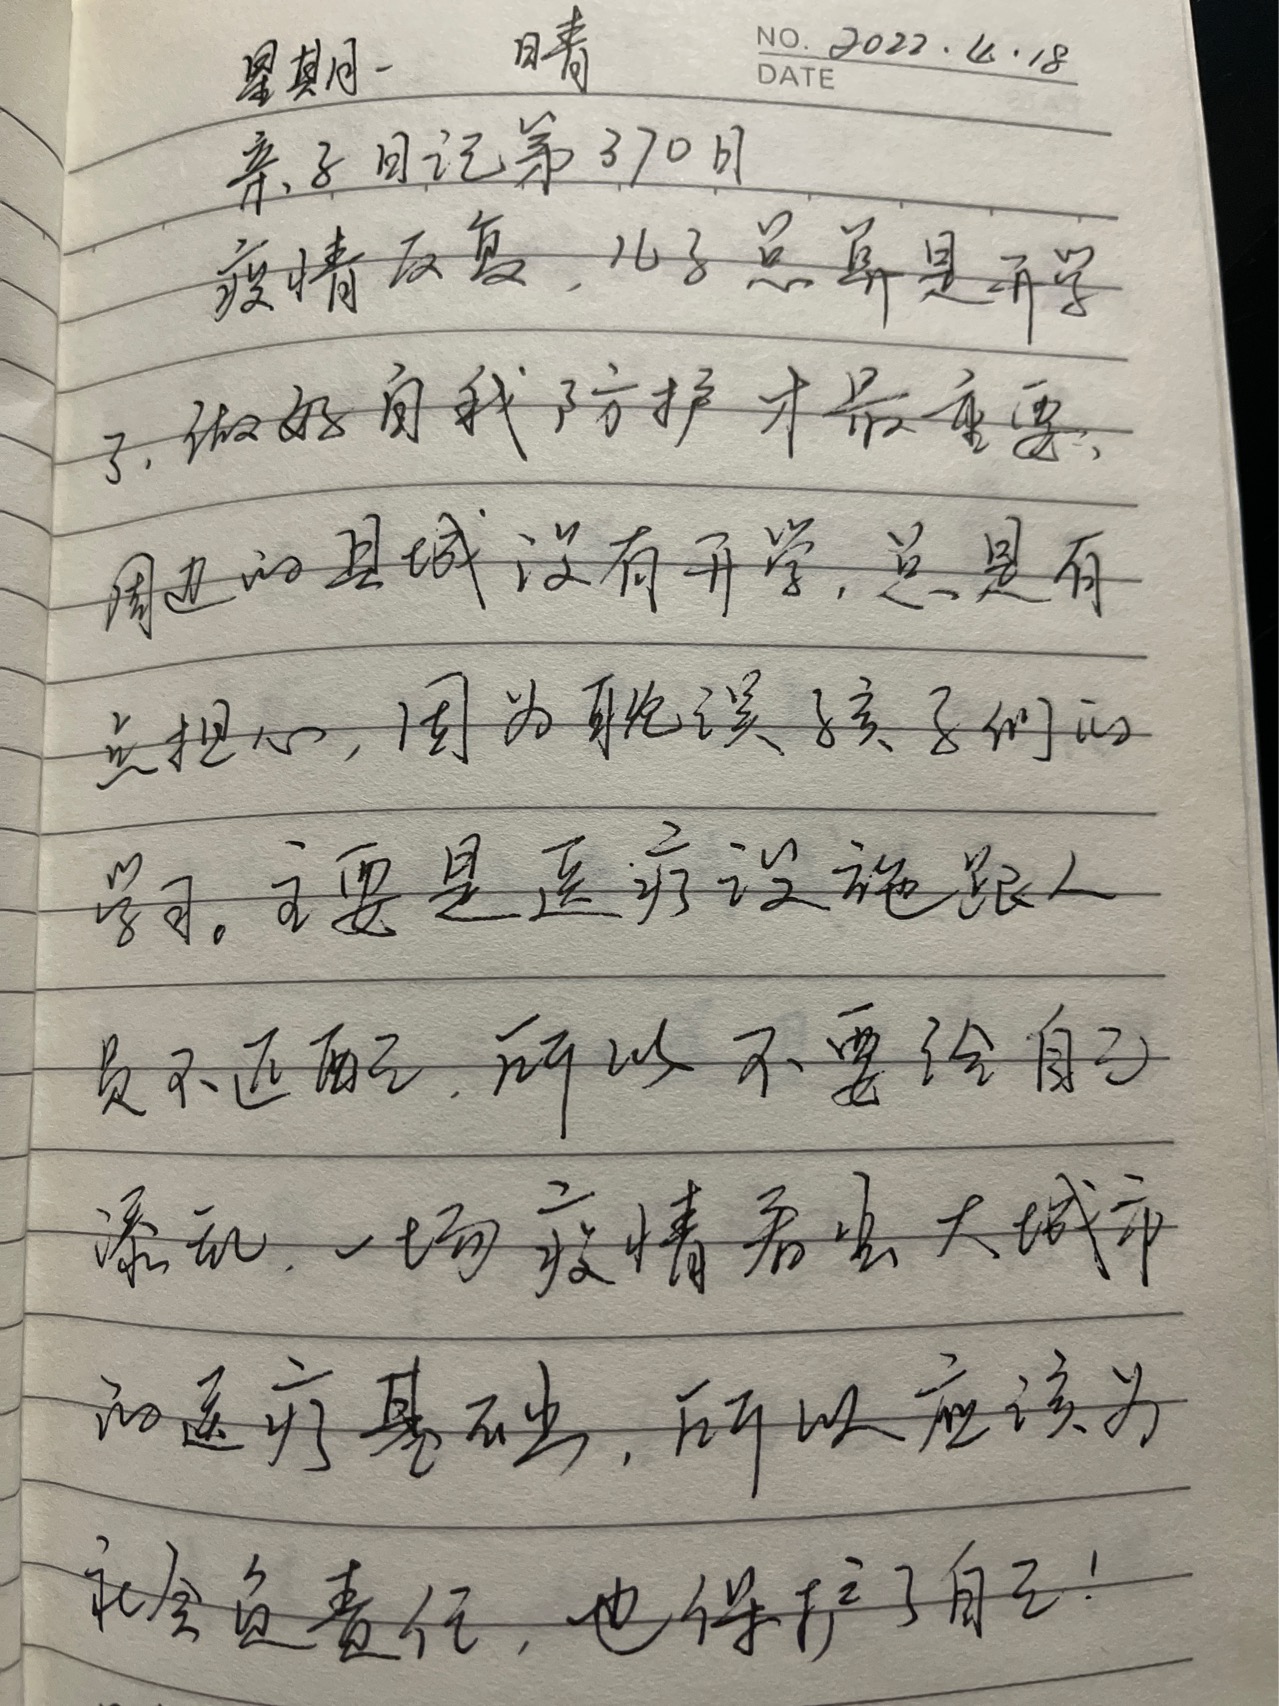 星期一 晴 NO. 2022.4.18
DATE
亲子日记第370日
疫情反复，儿子总算是开学
了.做好自我防护才最重要、
周边的县城没有开学，总是有
点担心，因为耽误孩子们的
学习。主要是医疗设施跟人
员不匹配，所以不要给自己
添乱，一场疫情看出大城市
的医疗基础，所以应该为
社会负责任，也保护了自己！